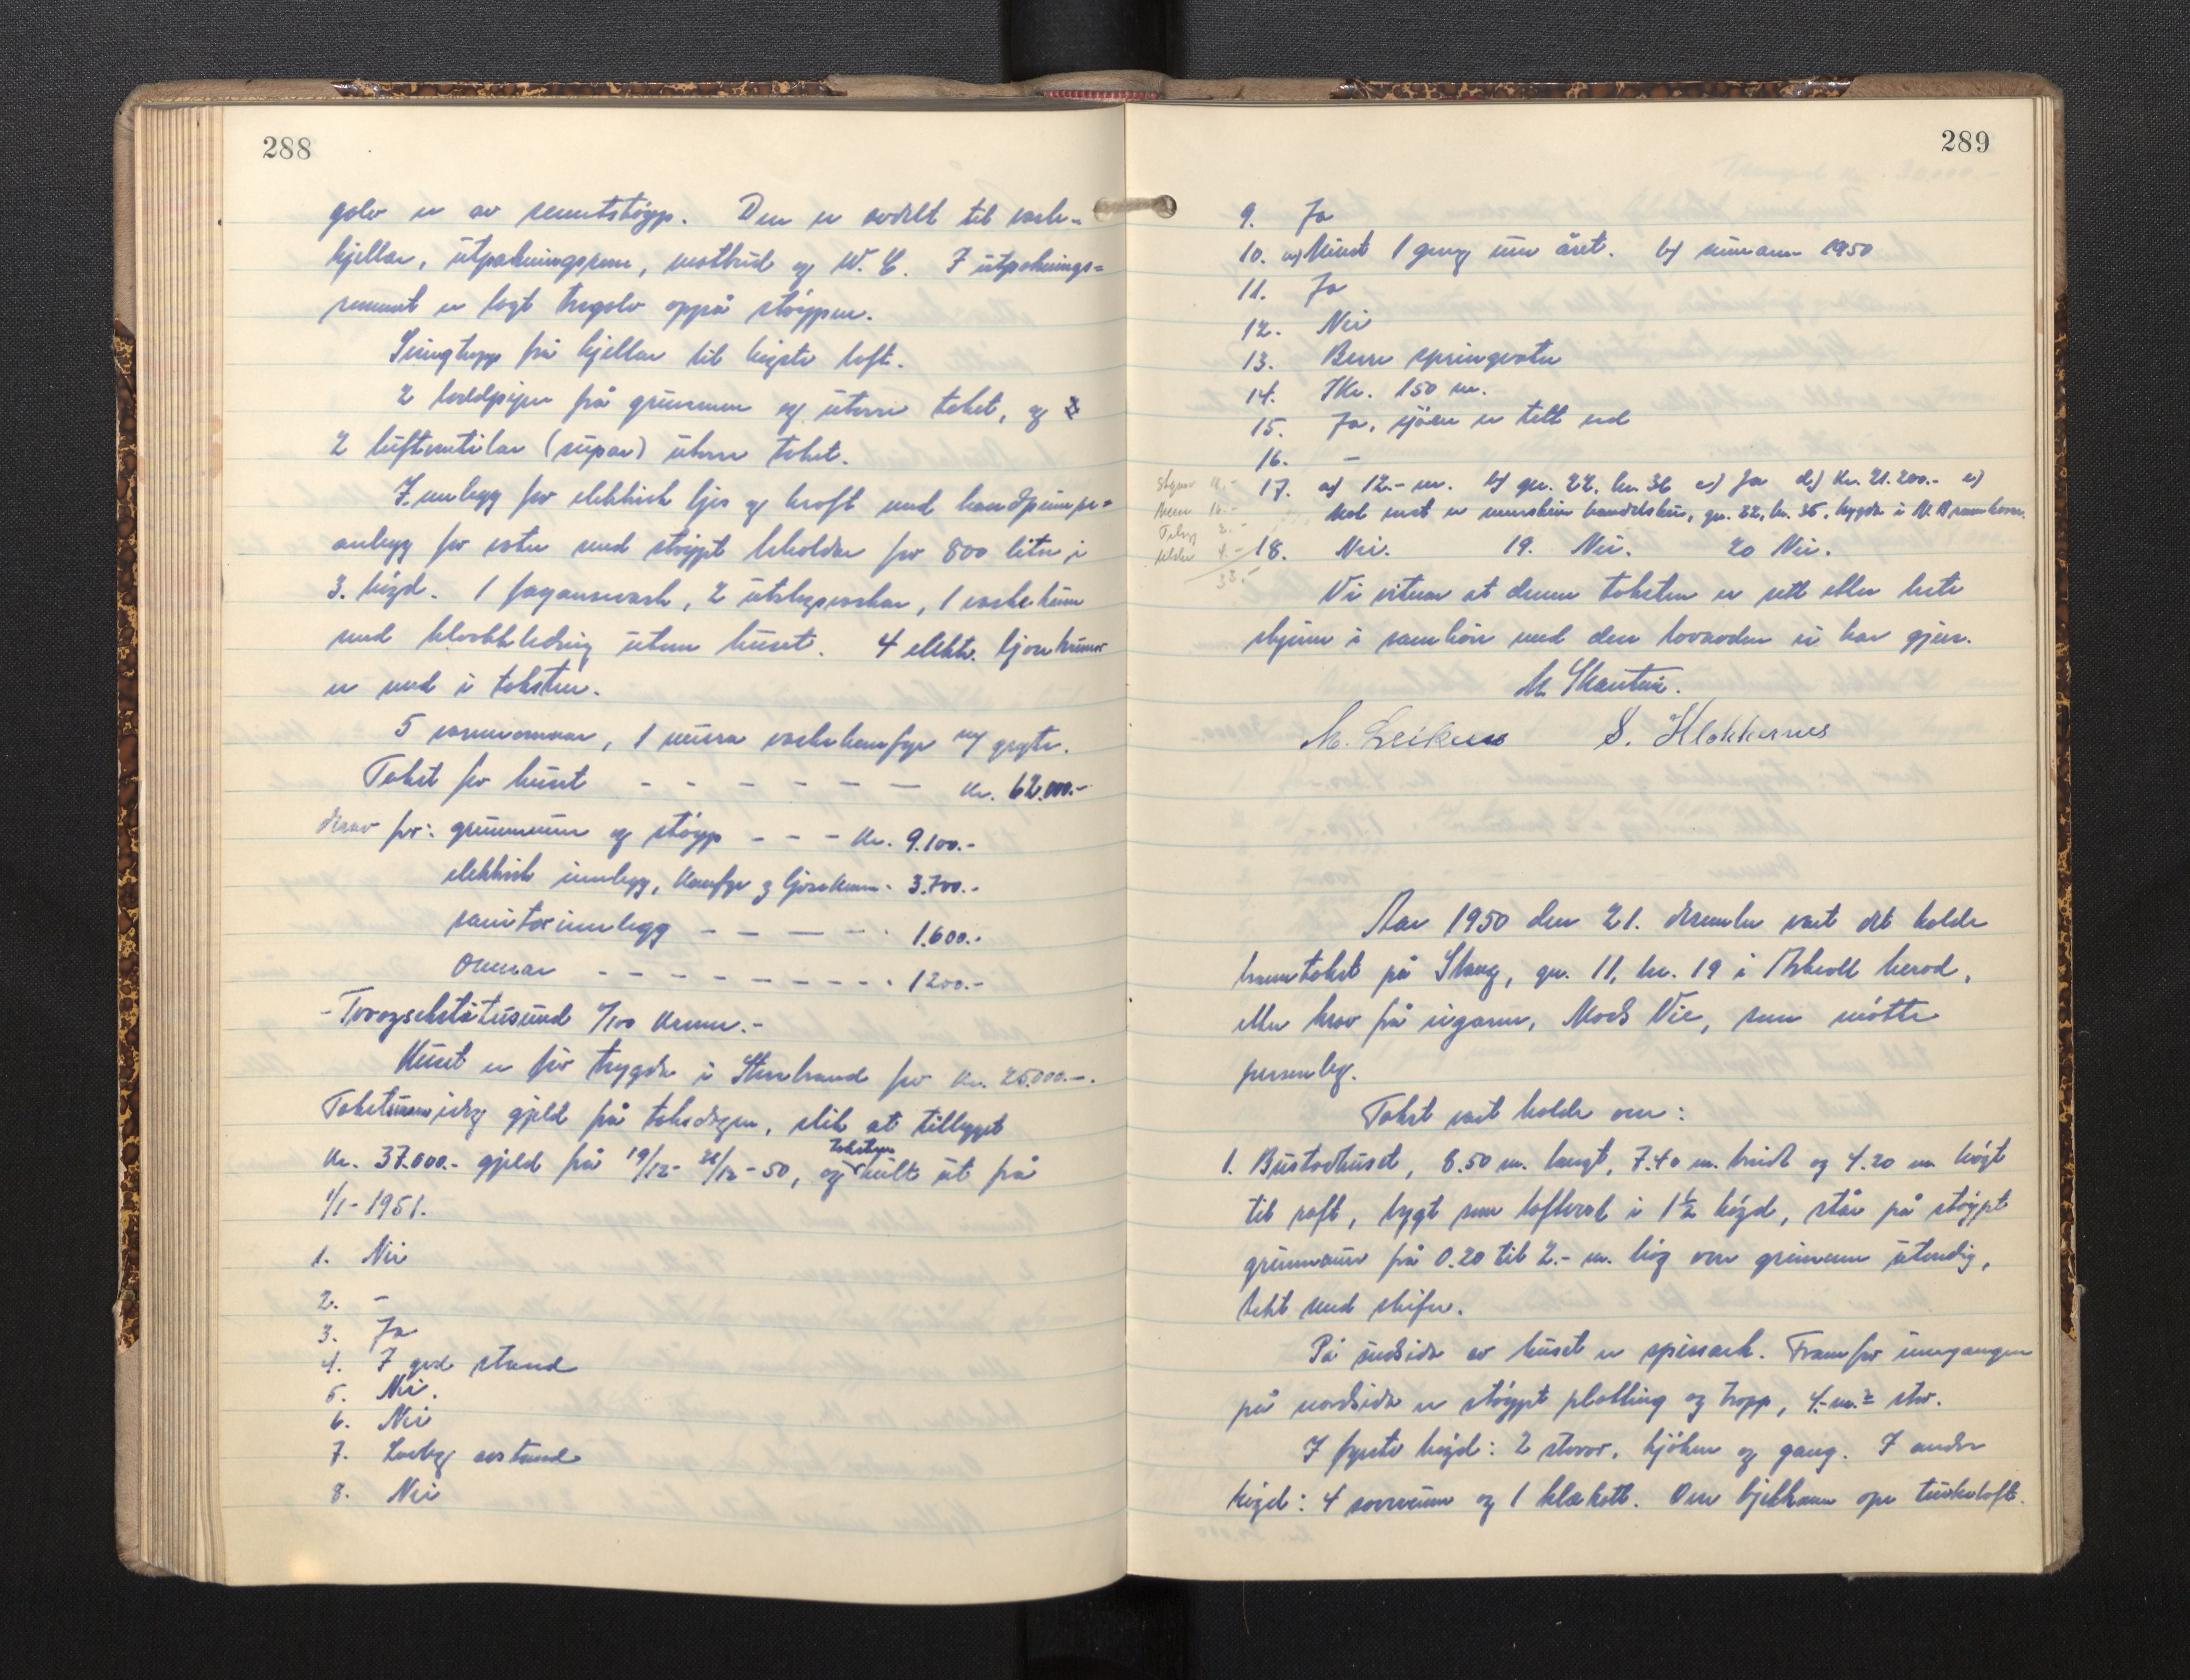 288
golv er av sementstøyp. Den er avdelt til vaske-
kjellar, utpakningsrom, matbud og W. C. I utpaknings-
rommet er lagt tregolv oppå støypen.
Svingtropp frå kjellar til høgste loft.
2 kvadpipor frå grunnen og utover taket, og
2 luftventilar (rupar) utover taket.
Innlegg for elektrisk ljos og kraft med handpumpe-
anlegg for vatn med støypt behaldar for 800 liter i
3. høgd. 1 fayansevask, 2 utslagsvaskar, 1 vaskekum
med kloakkledning utom huset. 4 elektr. ljoskrunor
er med i taksten.
5 varmeomnar, 1 mura vaskekomfyr m/ gryte.
Takst for huset - - - - - - - kr. 62.000.-
derav for: grunnmur og støyp - - - kr. 9.100.-
elektrisk innlegg, komfyr og ljoskrunor 3.700.-
sanitærinnlegg - - - - - 1.600.-
omnar - - - - - - - - - 1200.-
Tvoogsekstitusund 0/100 kroner.-
Huset er før trygda i Storebrand for kr. 25.000.-.
Takstsummen gjeld på taksdagen, slik at tillegget
kr. 37.000.- gjeld frå 19/12- 31/12-50, og taksten heilt ut frå
1/1-1951.
1. Nei
2. -
3. Ja
4. I god stand
5. Nei.
6. Nei
7. Lovleg avstand
8. Nei
289
9. Ja
10. a) Minst 1 gong um året. b) sumaren 1950
11. Ja
12. Nei
13. Berre springvatn
14. Ikr. 150 m.
15. Ja, sjøen er tett ved
16. -
17. a) 12.- m. b) gn. 22, bn. 36 c) Ja d) kr. 21.200.- e)
Mot vest er handelshus, gn. 22, bn. 35, trygda i N. Brannkasse.
18. Nei. 19. Nei. 20 Nei.
33.-
Vi vitnar at denne taksten er sett etter beste
skjønn i samhøve med den lovnaden vi har gjeve.
M. Skartun.
M. Leiknes S. Klokkernes
Aar 1950 den 21. desember vart det halde
branntakst på Skaug, gn. 11, bn. 19 i Askvoll herad,
etter krav frå eigaren, Mads Vie, som møtte
personleg.
Takst vart halde over:
1. Bustadhuset, 8.50 m. langt, 7.40 m. breidt og 4.20 m. høgt
til raft, bygt som laftverk i 1 1/2 høgd, står på støypt
grunnmur frå 0.20 til 2.- m. høg over grunnen utvendig,
tekt med skifer.
På sudsida av huset er spissark. Framfor inngangen
på nordsida er støypt platting og tropp, 4.- m.² stor.
I fyrste høgd: 2 stovor, kjøken og gang. I andre
høgd: 4 soverum og 1 klekott. Over bjelkane ope turkeloft.